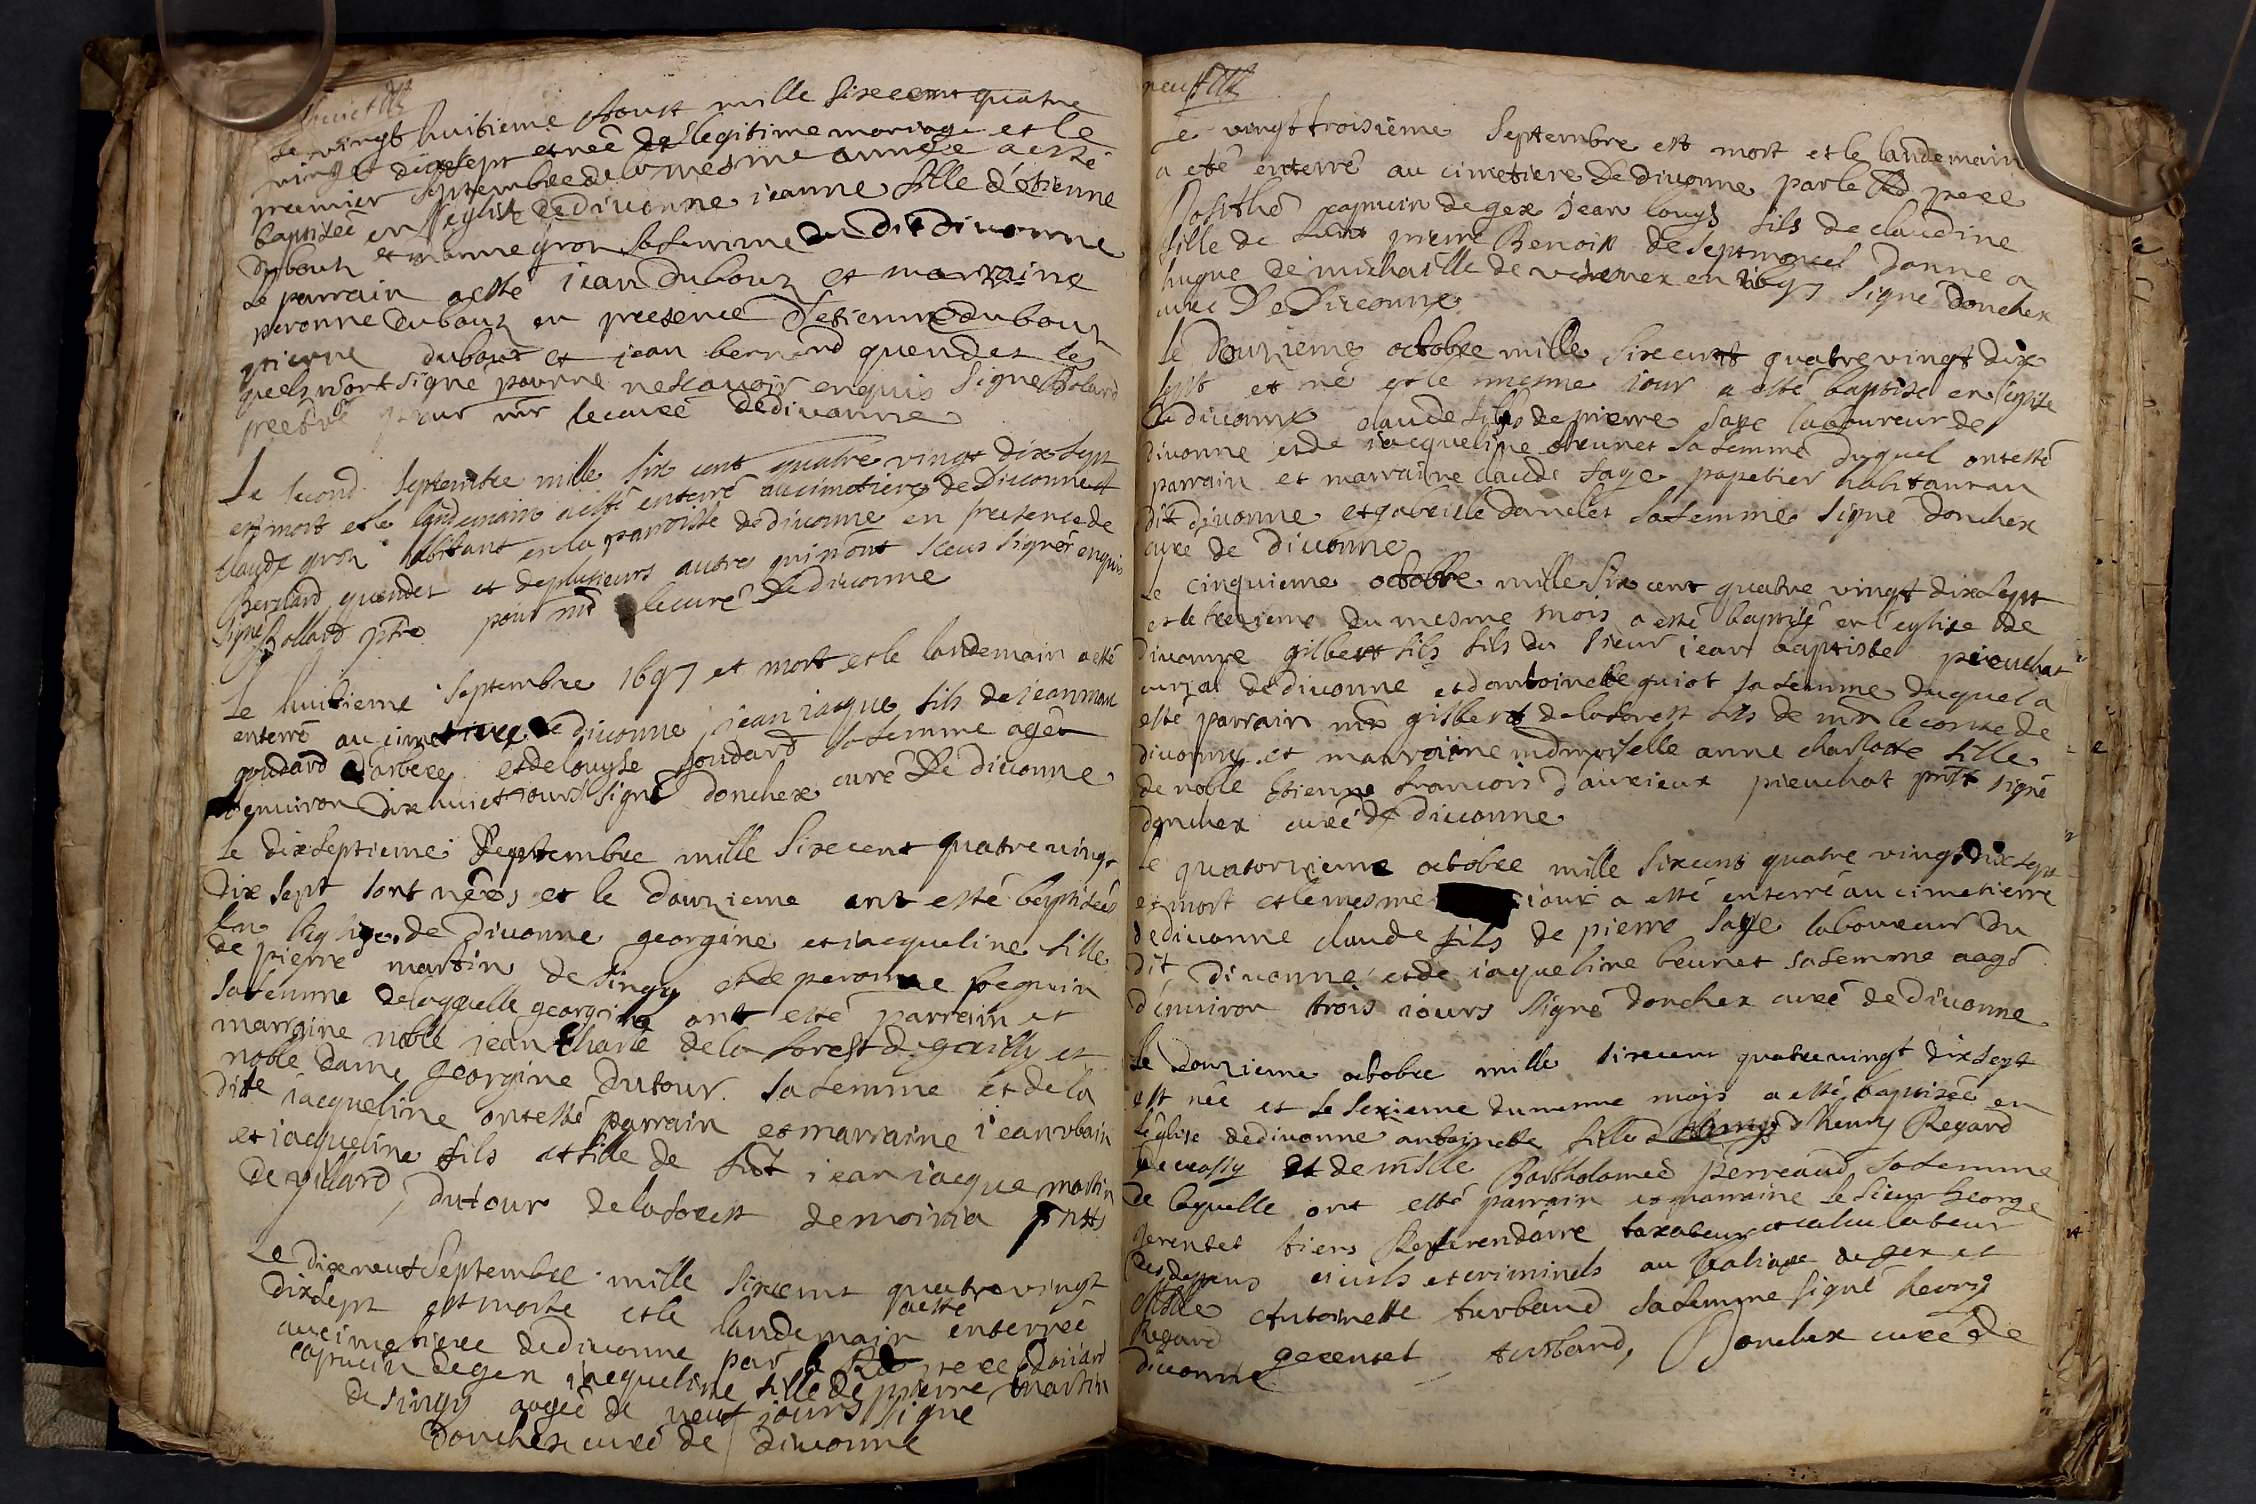 huict
Le vingt huitieme Aoust mille sixcent quatre
vingt dixsept est née de legitime mariage et le
premier septembre de la mesme année a esté
baptisée en l'eglise de divonne jeanne fille d'étienne
dubout et gros sa femme du dit divonne
le parrain a esté jean dubouz et marraine
peronne dubouz en presence d'etienne dubouz
dubout et jean bernard quendet les
quels n'ont signé pour ne scavoir enquis signé Bolard
pour mr le curé de divonne
Le second septembre mille six cent quatre vingt dix sept
est mort et le landemain a esté enterré au cimetiere de Divonne
claude gros habitant en la parroisse de divonne en presence de
Bernard quendet et de plusieurs autres qui n'ont sceu signer enquis
signé Bollard ptre pour mr le curé de divonne
Le huitieme septembre 1697 et mort et le landemain a esté
enterré au cimetiere de divonne jean jacque fils de jean
goudard d'arbere et de louyse goudard sa femme agé
d'environ dix huict jours signé donchex curé de divonne
Le dixseptieme septembre mille sixcent quatre vingt
dix sept sont nées et le douzieme ont esté baptisées
en leglise de divonne georgine et jacqueline fille
de pierre martin de singy et de peronne peguin
sa femme de laquelle georgine ont esté parrain et
marraine noble jean charle de la forest de grilly et
noble dame georgine dutour sa femme et de la
dite jacqueline ont esté parrain et marraine jean vbain
et jacqueline fils et fille de jean jacque martin
de villard, dutour de la forest de moiria
Le dix neuf septembre mille sixcent quatre vingt
dixsept est morte et le landemain a esté enterrée
au cimetiere de divonne par le Rd pere
capucin de gex jacqueline fille de pierre martin
de singy aagée de neuf jours signé
donchex curé de divonne
neuf
Le vingt troisieme septembre est mort et le landemain
a eté enterré au cimetiere de divonne par le Rd pere
capucin de gex jean louys fils de claudine
fille de pierre Benoist de septmoncel donne a
hugue de michaille de en 1697 signé donchex
curé De Divonne
Le Douzieme octobre mille sixcent quatre vingt dix
sept et né et le mesme jour a esté baptisé en l'eglise
de divonne claude fils de pierre saye laboureur de
divonne et de jacqueline beunet sa femme duquel ont esté
parrain et marraine claude saye papetier habitant au
dit divonne et gabrielle danclet sa femme signé donchex
curé de divonne
Le cinquieme octobre mille six cent quatre vingt dix sept
et le trezieme du mesme mois a esté baptisé en l'eglise de
divonne gilbert fils fils du sieur jean baptiste pieuchat
curial de divonne et d'antoinette guiot sa femme duquel a
esté parrain mr gilbert de la forest fils de mr le conte de
divonne et marraine madmoiselle anne charlotte fille
de noble Etienne francois d'auxieux pieuchat signé
donchex curé de divonne
Le quatorzieme octobre mille sixcent quatre vingt dix sept
et mort et le mesme jour a esté enterré au cimetierre
de divonne claude fils de pierre saye laboureur du
dit divonne et de jaqueline beunet sa femme aagé
d'environ trois jours signé donchex curé de divonne
Le douzieme octobre mille sixcent quatre vingt dix sept
est née et le sexieme du mesme mois a esté baptisée en
l'eglise de divonne antoinette fille d'henry Regard
de crassy et de mlle Bartholomée perreaud sa femme
de laquelle ont esté parrain et marraine le sieur George
gerentet tiers Refferendaire taxateur et calculateur
des depens civils et criminels au Baliage de gex et
mlle Antoinette turband sa femme signé henry
Regard gerentet turband, Donchex curé de
divonne